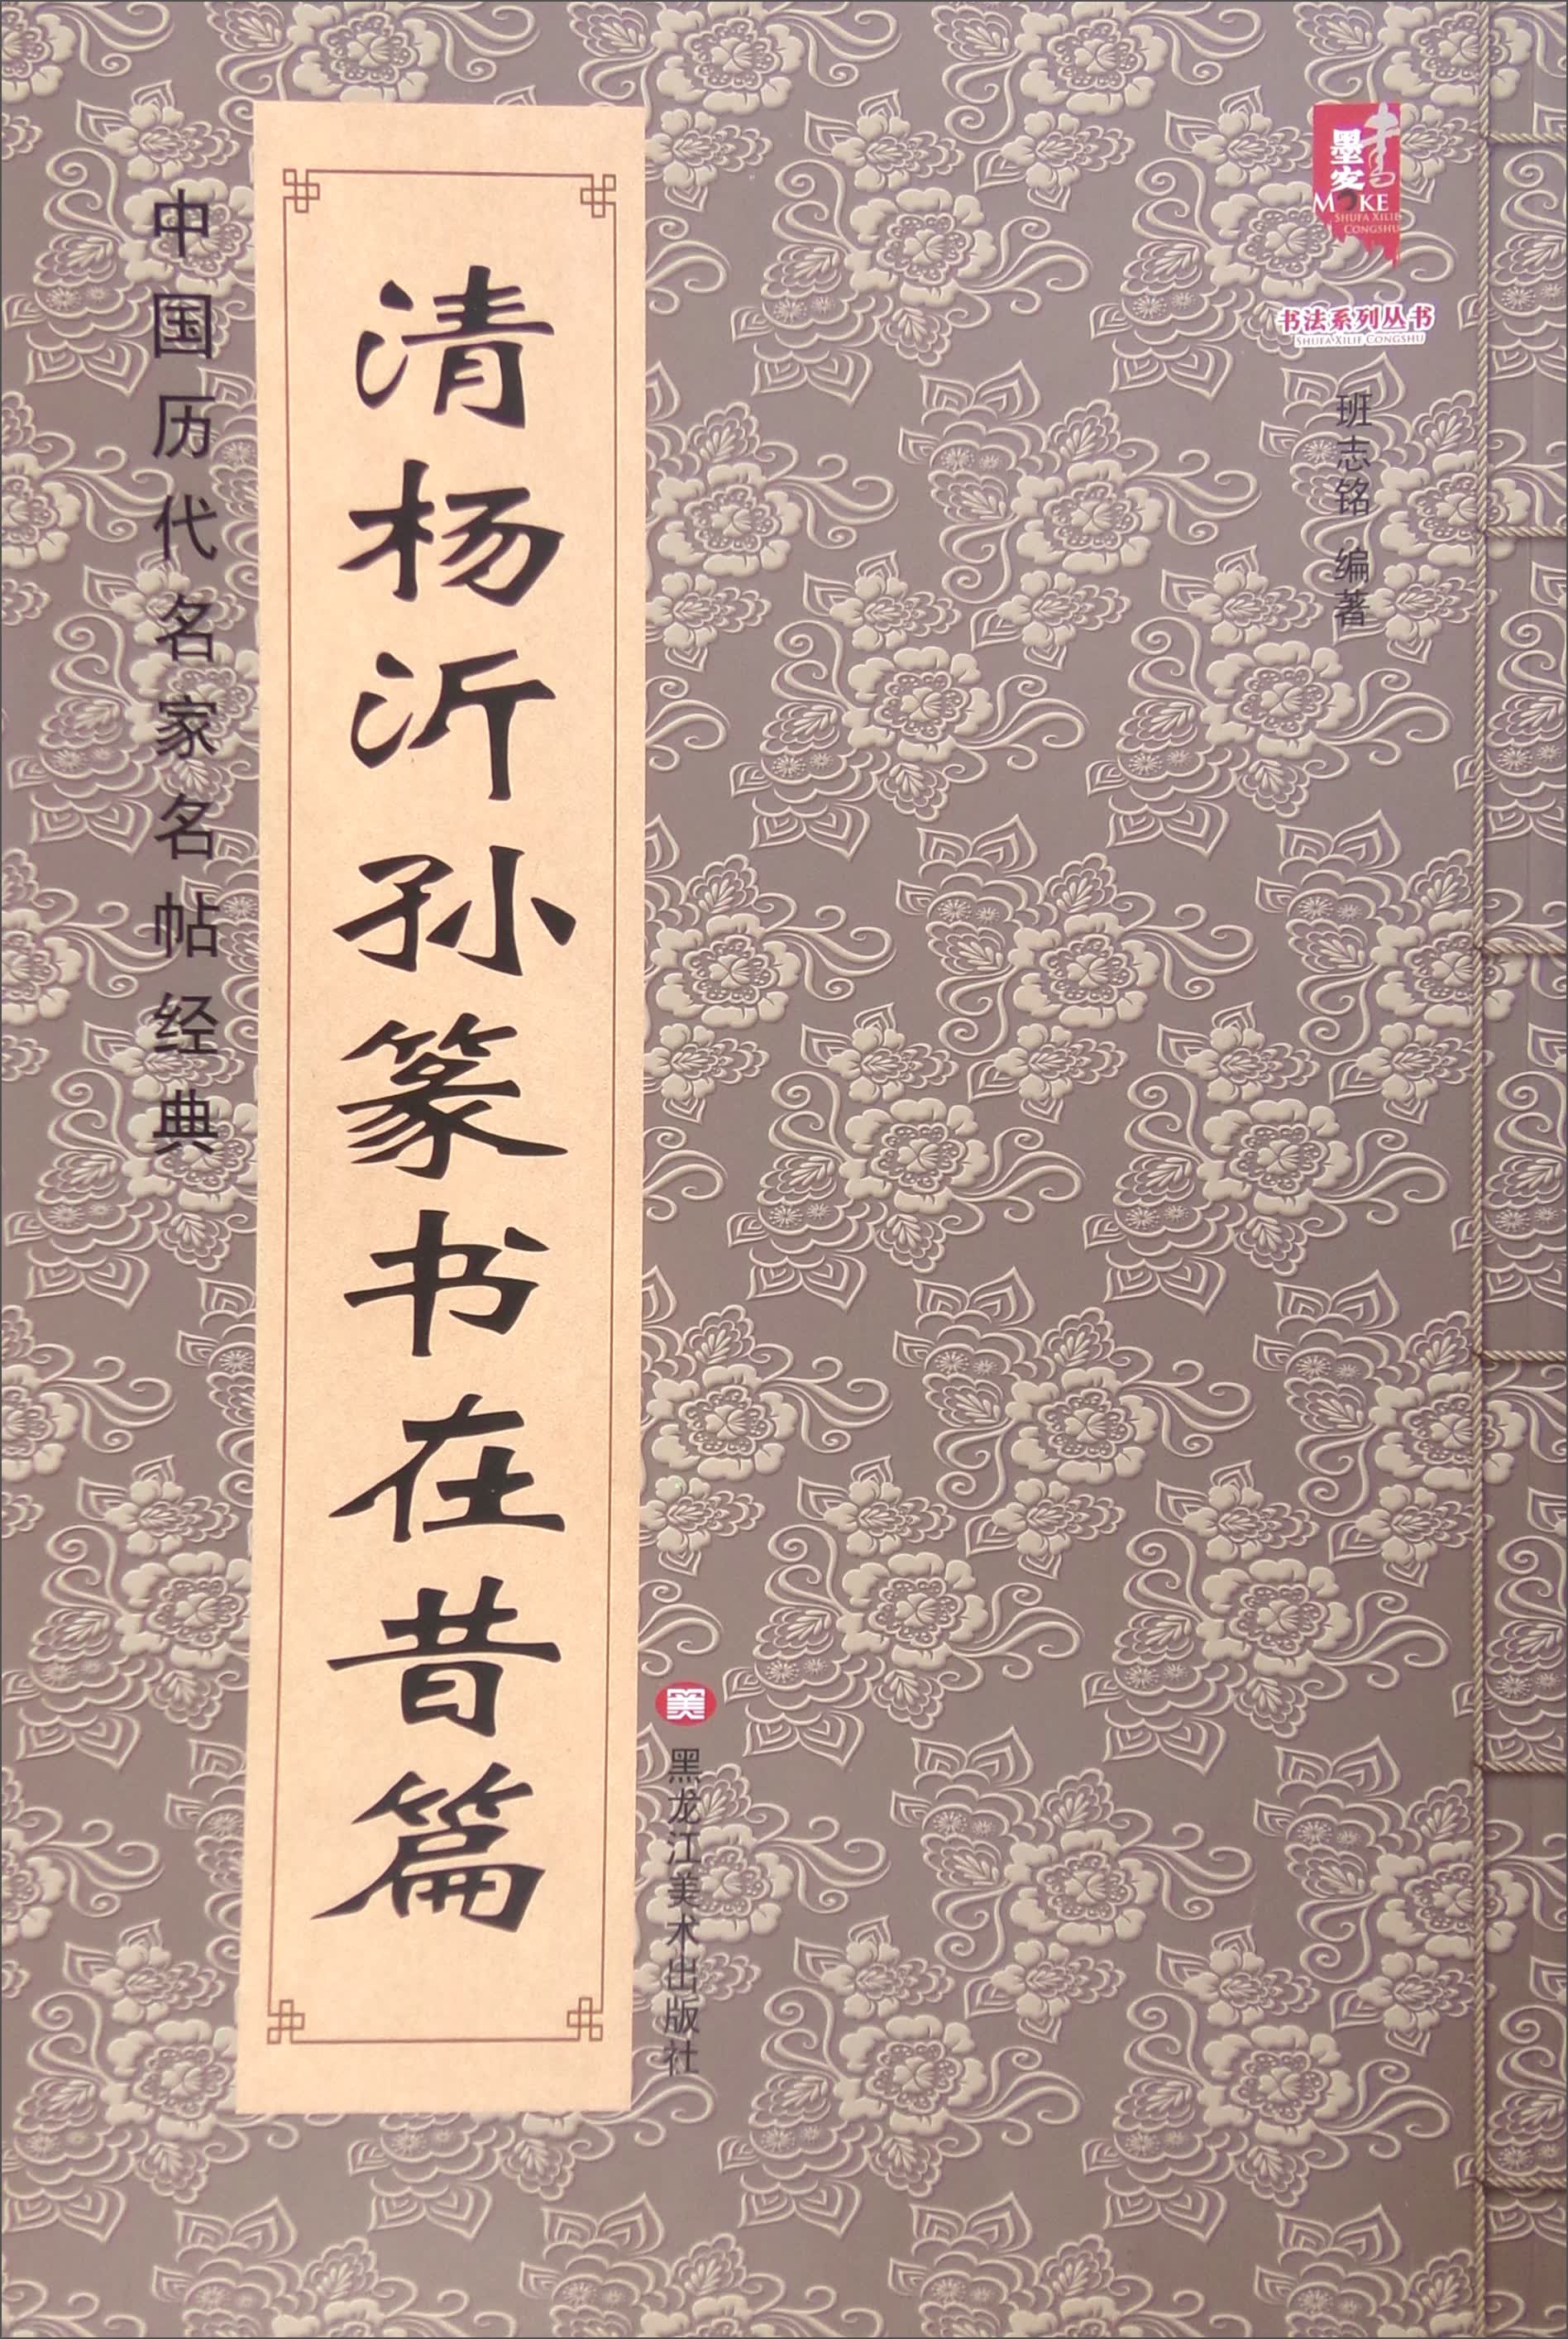 墨客
MOKE
SHUFA XILIE
CONGSHU
书法系列丛书
SHUFA XILIE CONGSHU
班志铭 编著
美
黑龙江美术出版社
清杨沂孙篆书在昔篇
中国历代名家名帖经典